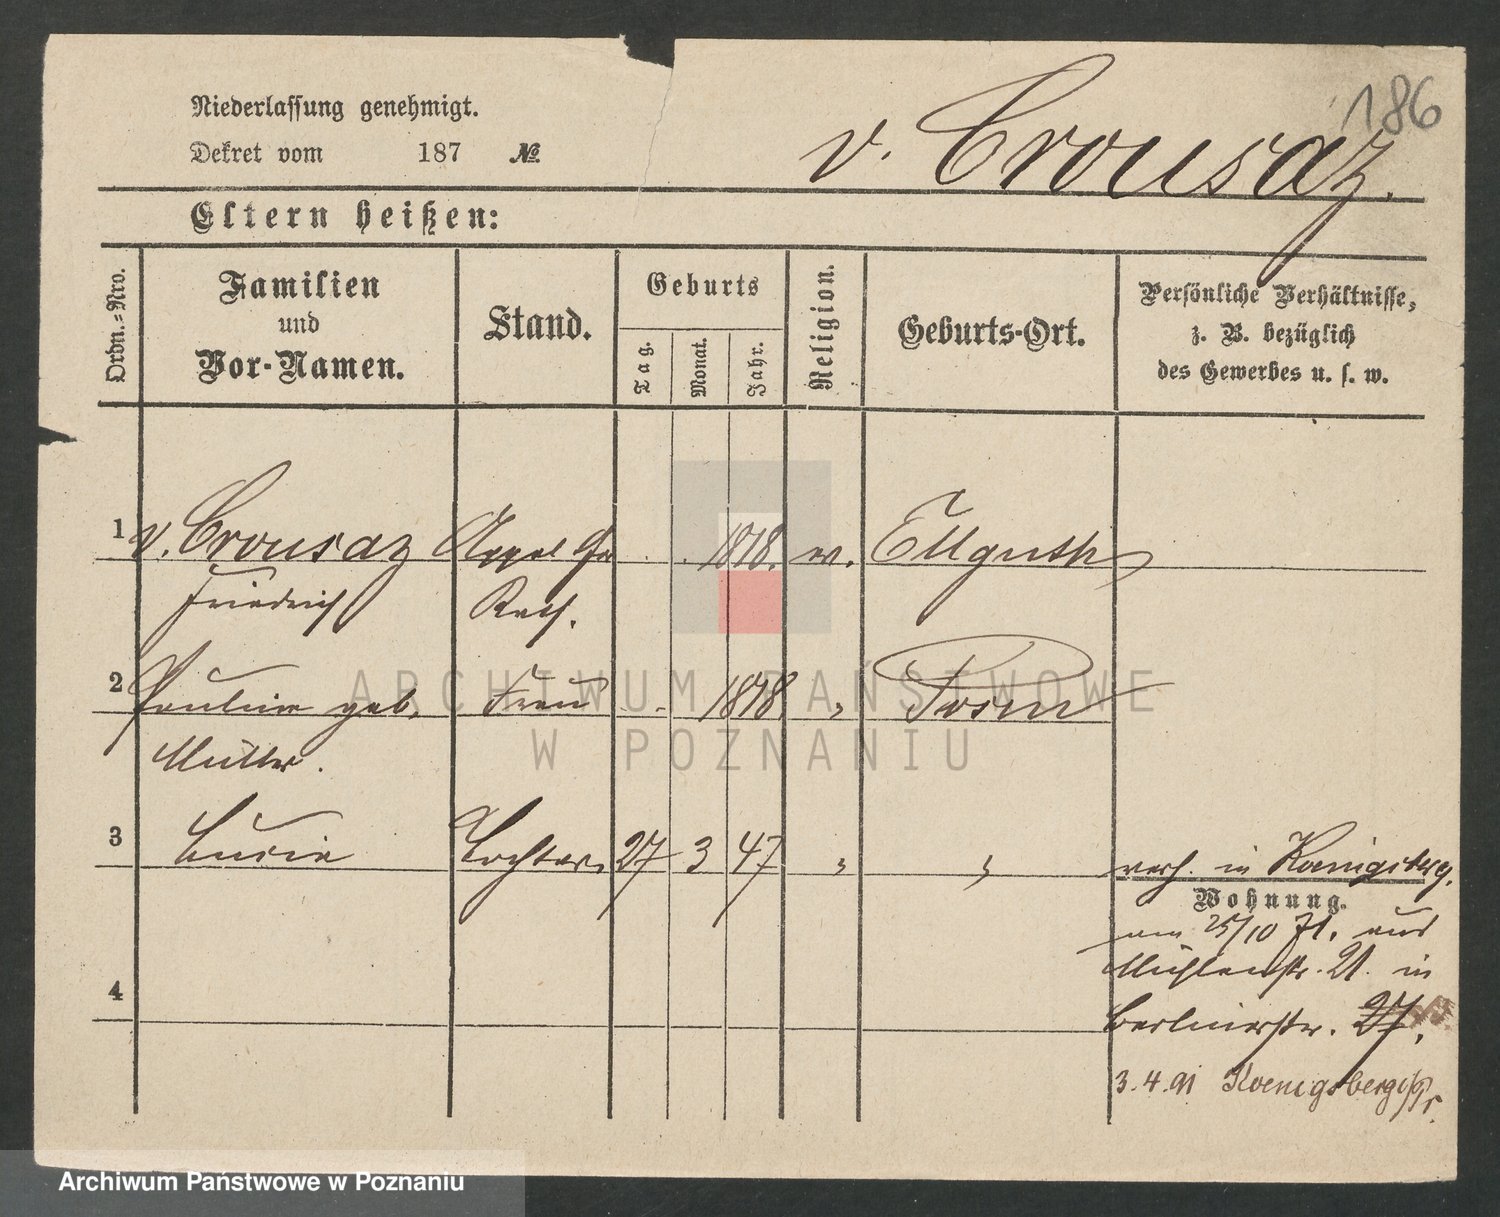 186
Niederlassung genehmigt.
v. Crousaz.
Dekret vom 187 №
Eltern heißen:
Ordn.-Nro.
Familien
und
Vor-Namen.
Stand.
Geburts
Tag.
Monat.
Jahr.
Religion.
Geburts-Ort.
Persönliche Verhältnisse,
z. B. bezüglich
des Gewerbes u. s. w.
1 v. Crousaz Appel Ger 1818. ev. Ellguth
Friedrich Rath.
2 Pauline geb. Frau 1818 " Posen
Müller.
3 Lucie Tochter 27 3 47 " " verh. in Koenigsberg.
Wohnung.
am 25/10 71. aus
Mühlenstr. 21. in
4
Berlinerstr. 27.
3.4.91 Koenigsberg i/Pr.
ARCHIWUM PAŃSTWOWE
W POZNANIU
Archiwum Państwowe w Poznaniu